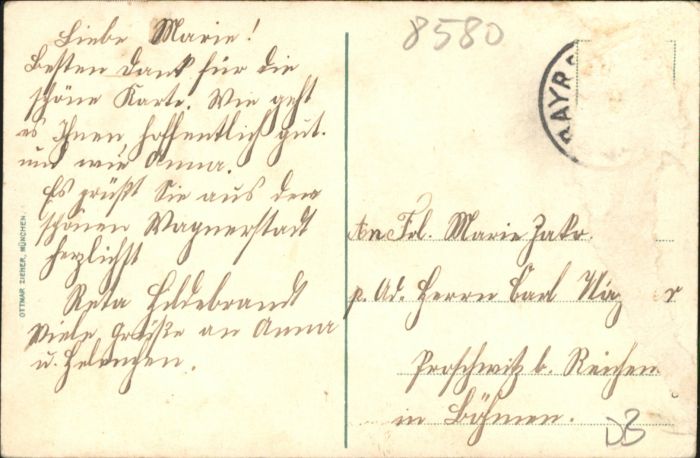 Liebe Marie!
Besten Dank für die
schöne Karte. Wie geht
es Ihnen hoffentlich gut.
und wie Anna.
Es grüßt Sie aus der
schönen Wagnerstadt
herzlichst
Reta Hildebrandt
Viele Grüße an Anna
u. Helenchen.
OTTMAR ZIEHER, MÜNCHEN.
8580
BAYR
An Frl. Marie Zakr
p. Ad. Herrn Carl
Proschwitz b. Reichen
in Böhmen.
DB